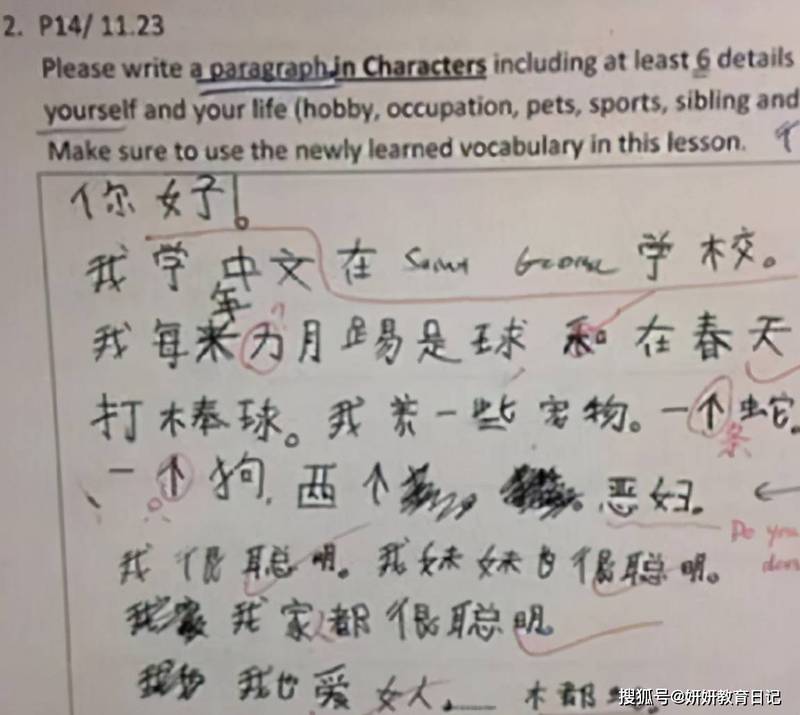 2. P14/ 11.23
Please write a paragraph in Characters including at least 6 details
yourself and your life (hobby, occupation, pets, sports, sibling and
Make sure to use the newly learned vocabulary in this lesson.
你好!。
我学中文在 George 学校。
年
我每 月踢是球 在春天
打棒球。我养一些宠物。一个蛇。
条
一个狗, 两个 恶妇。
Do you
我很聪明。我妹妹也很聪明。
我家都很聪明。
我也爱女人
搜狐号@妍妍教育日记